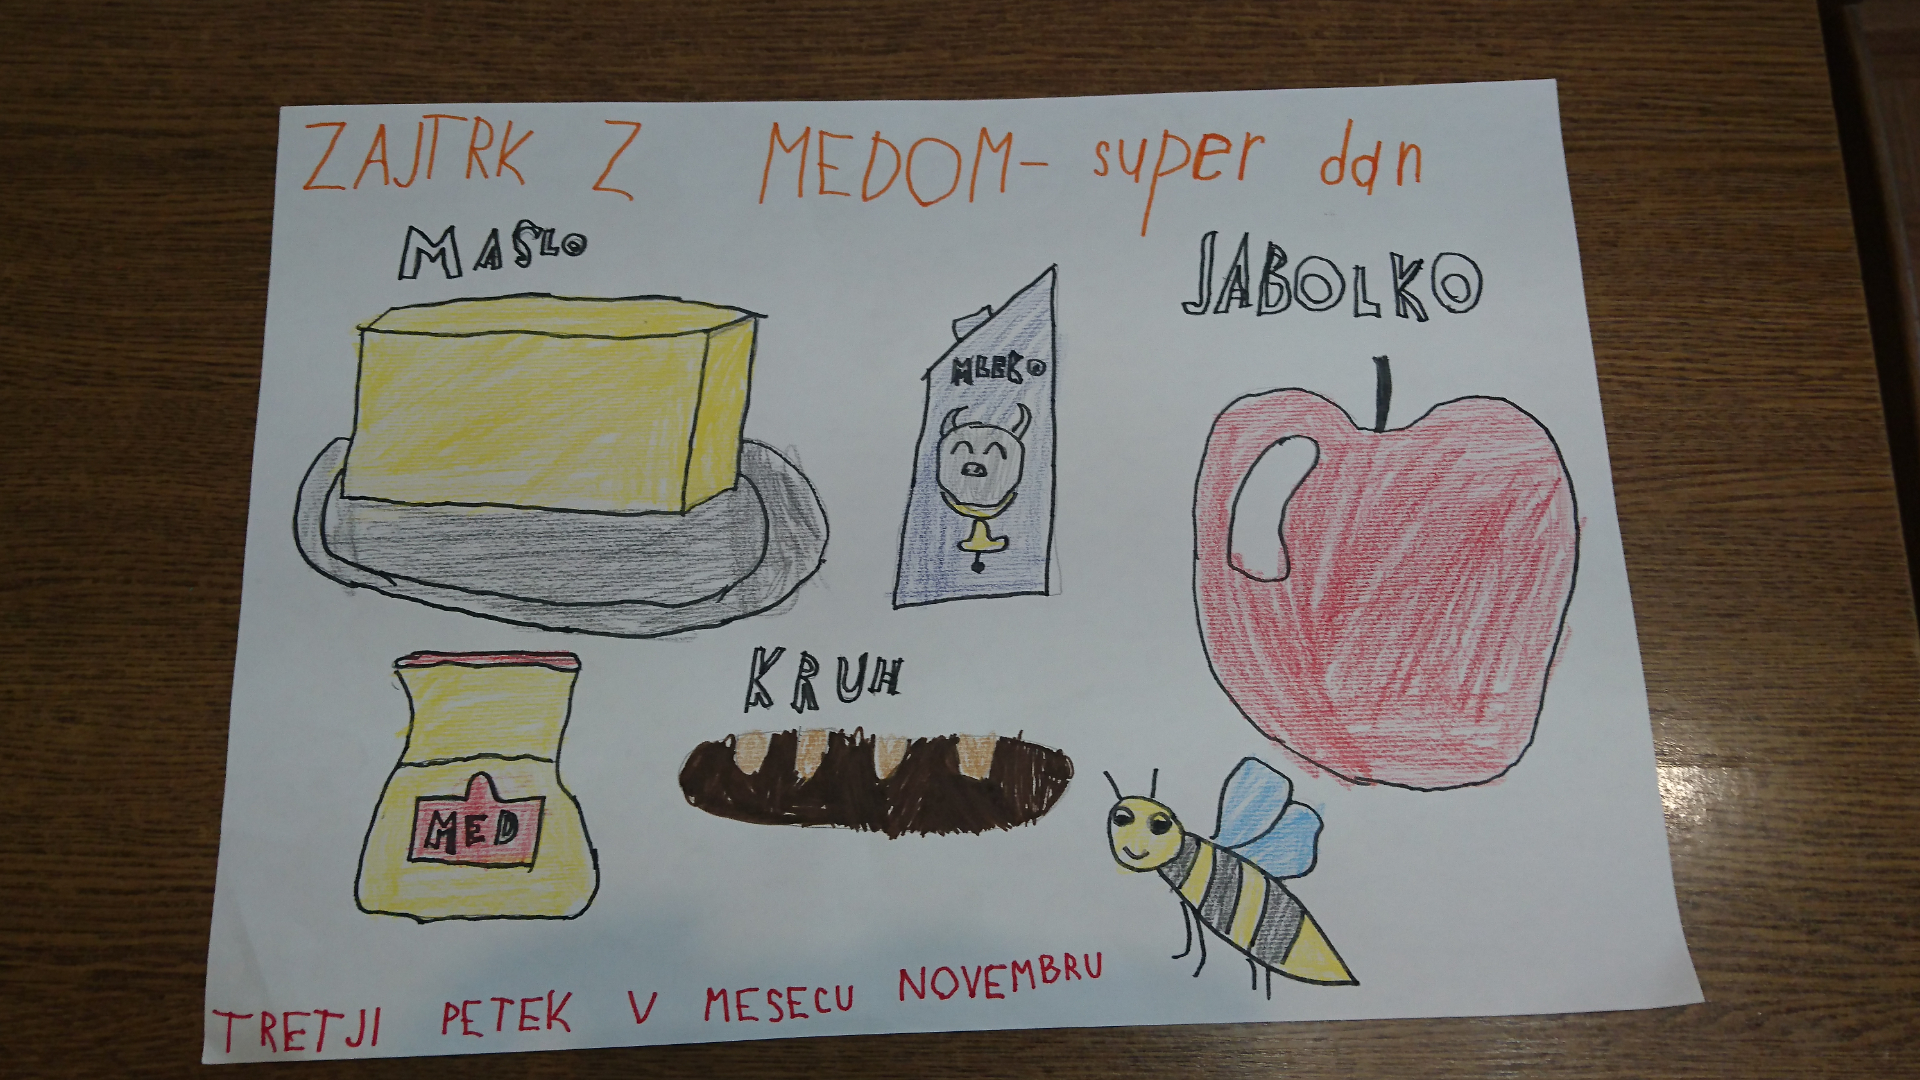 ZAJTRK Z MEDOM- super dan
MASLO
JABOLKO
MLEKO
KRUH
MED
TRETJI PETEK V MESECU NOVEMBRU